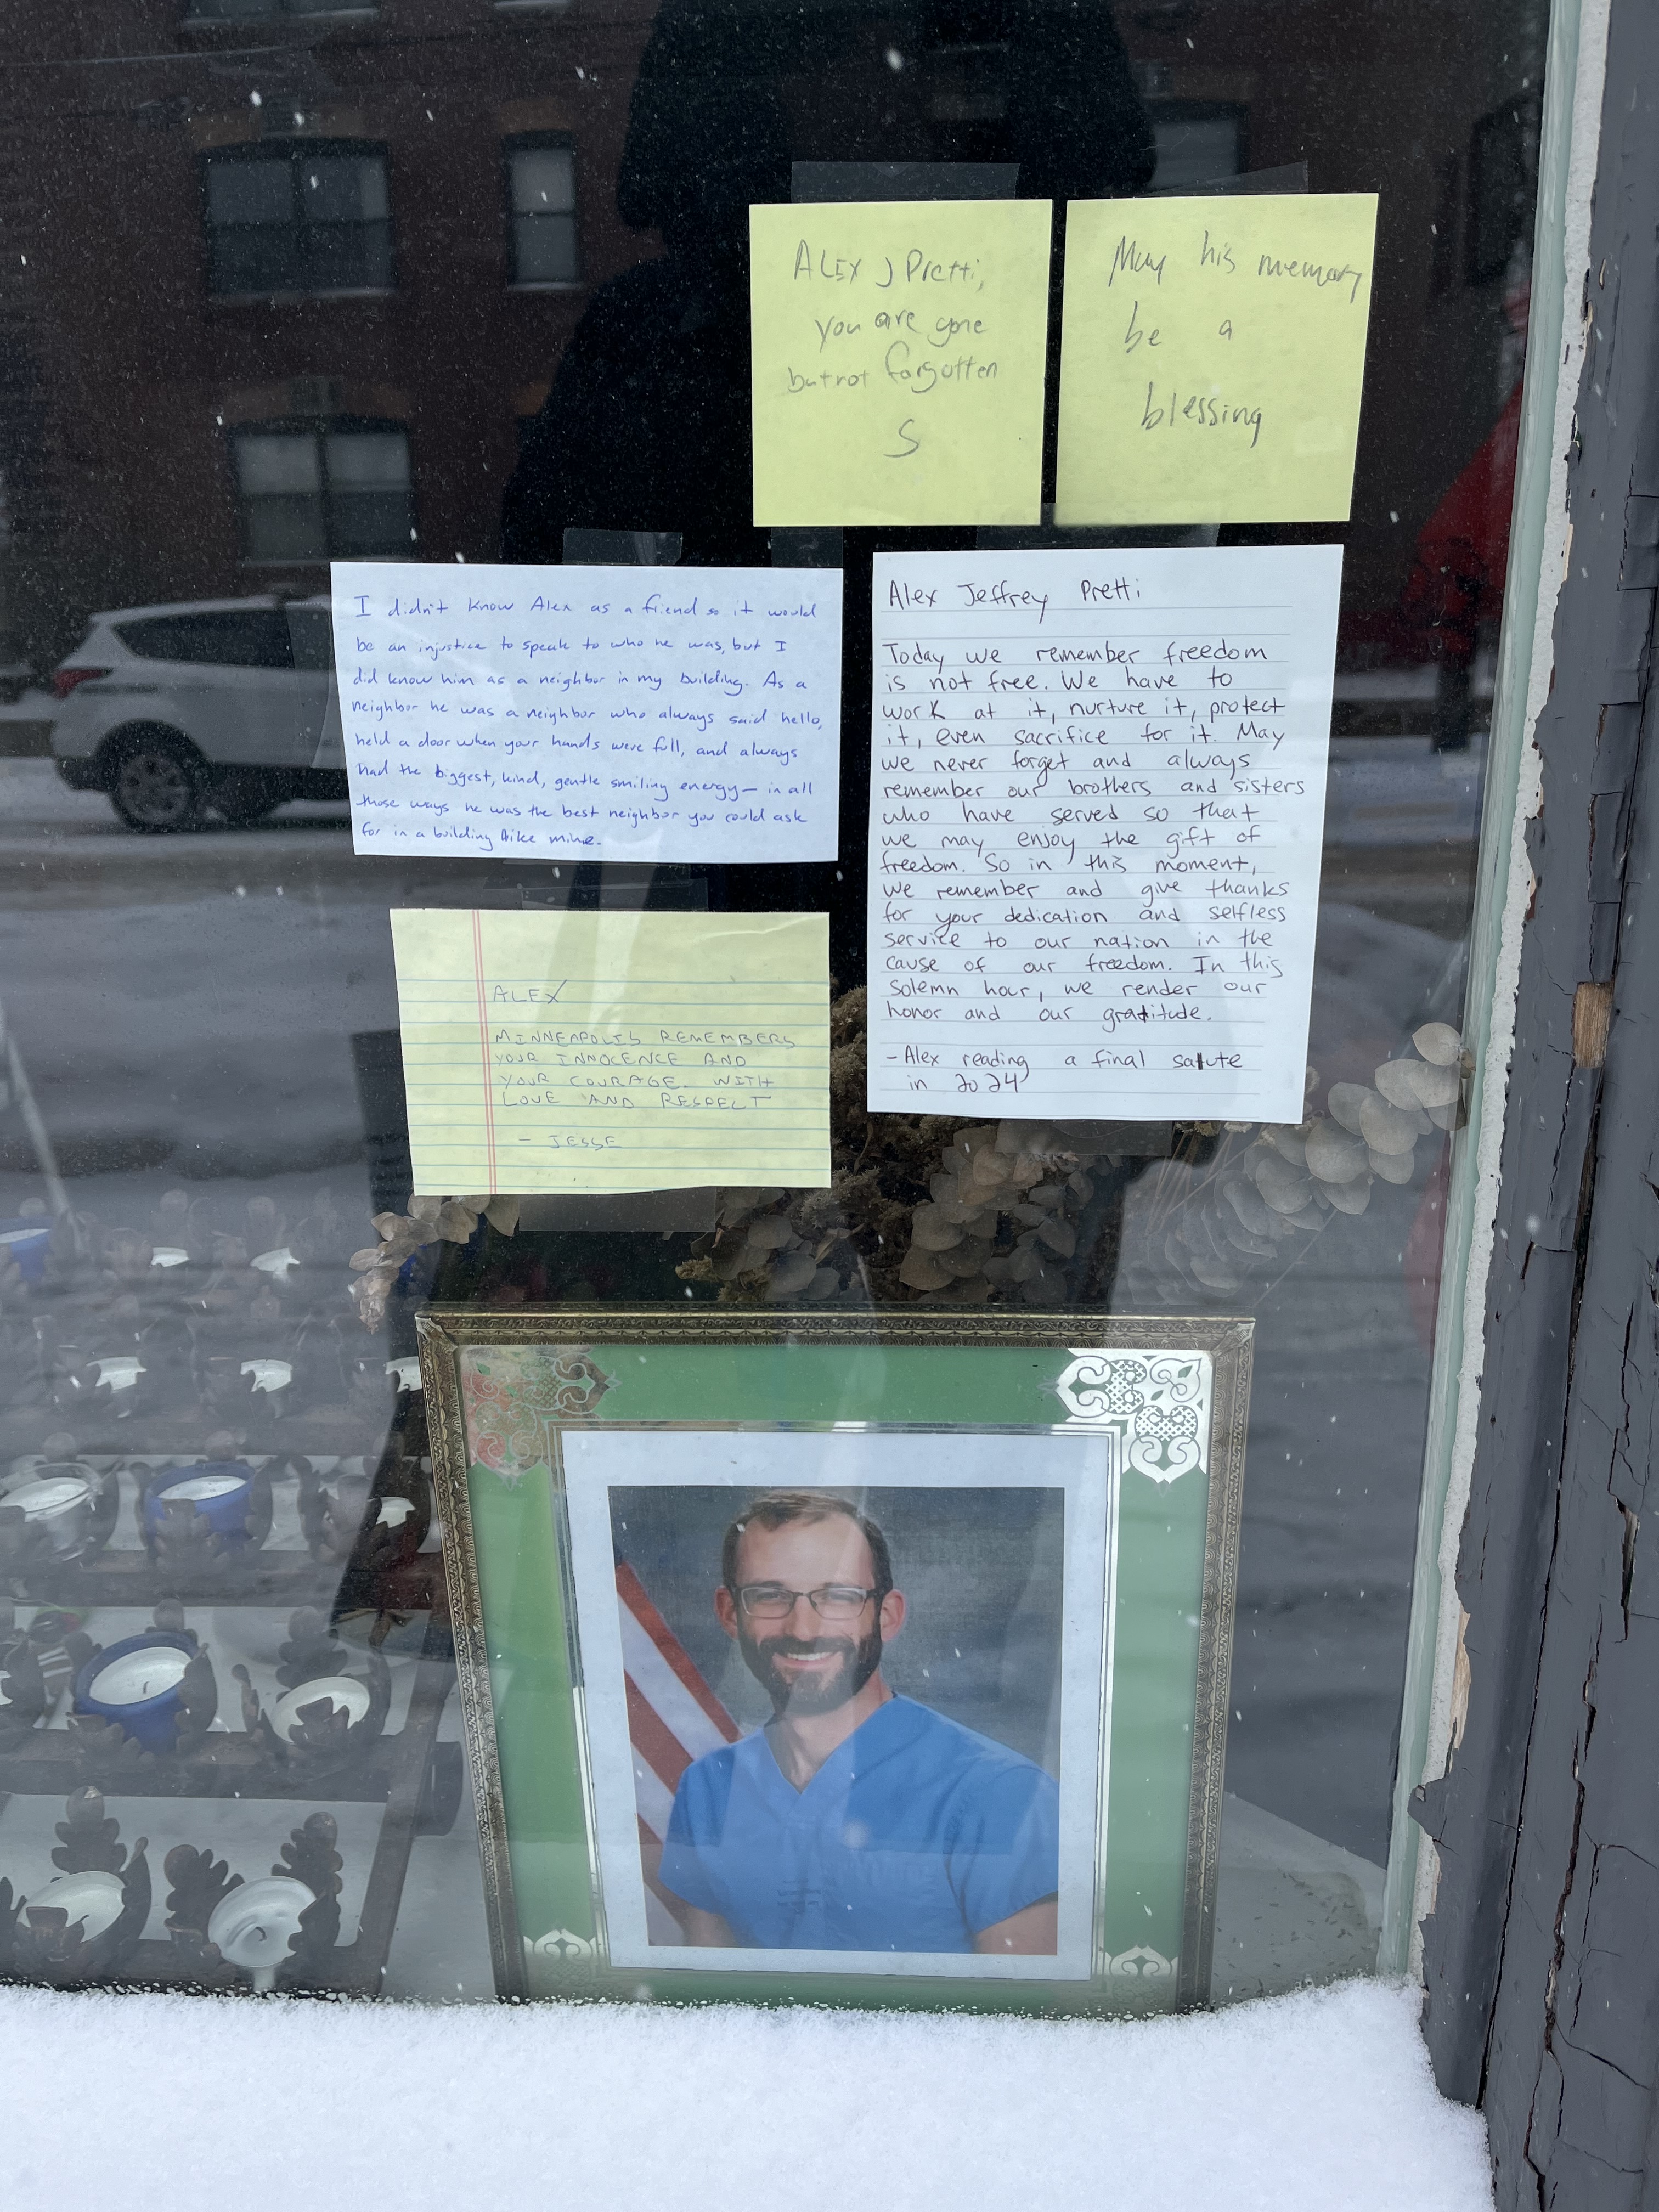 ALEX J Pretti,
you are gone
but not forgotten
S
May his memory
be a
blessing
I didn't know Alex as a friend so it would
be an injustice to speak to who he was, but I
did know him as a neighbor in my building. As a
neighbor he was a neighbor who always said hello,
held a door when your hands were full, and always
had the biggest, kind, gentle smiling energy— in all
those ways he was the best neighbor you could ask
for in a building like mine.
Alex Jeffrey Pretti
Today we remember freedom
is not free. We have to
work at it, nurture it, protect
it, even sacrifice for it. May
we never forget and always
remember our brothers and sisters
who have served so that
we may enjoy the gift of
freedom. So in this moment,
we remember and give thanks
for your dedication and selfless
service to our nation in the
cause of our freedom. In this
solemn hour, we render our
honor and our gratitude.
- Alex reading a final salute
in 2024
ALEX
MINNEAPOLIS REMEMBERS
YOUR INNOCENCE AND
YOUR COURAGE. WITH
LOVE AND RESPECT
- JESSE